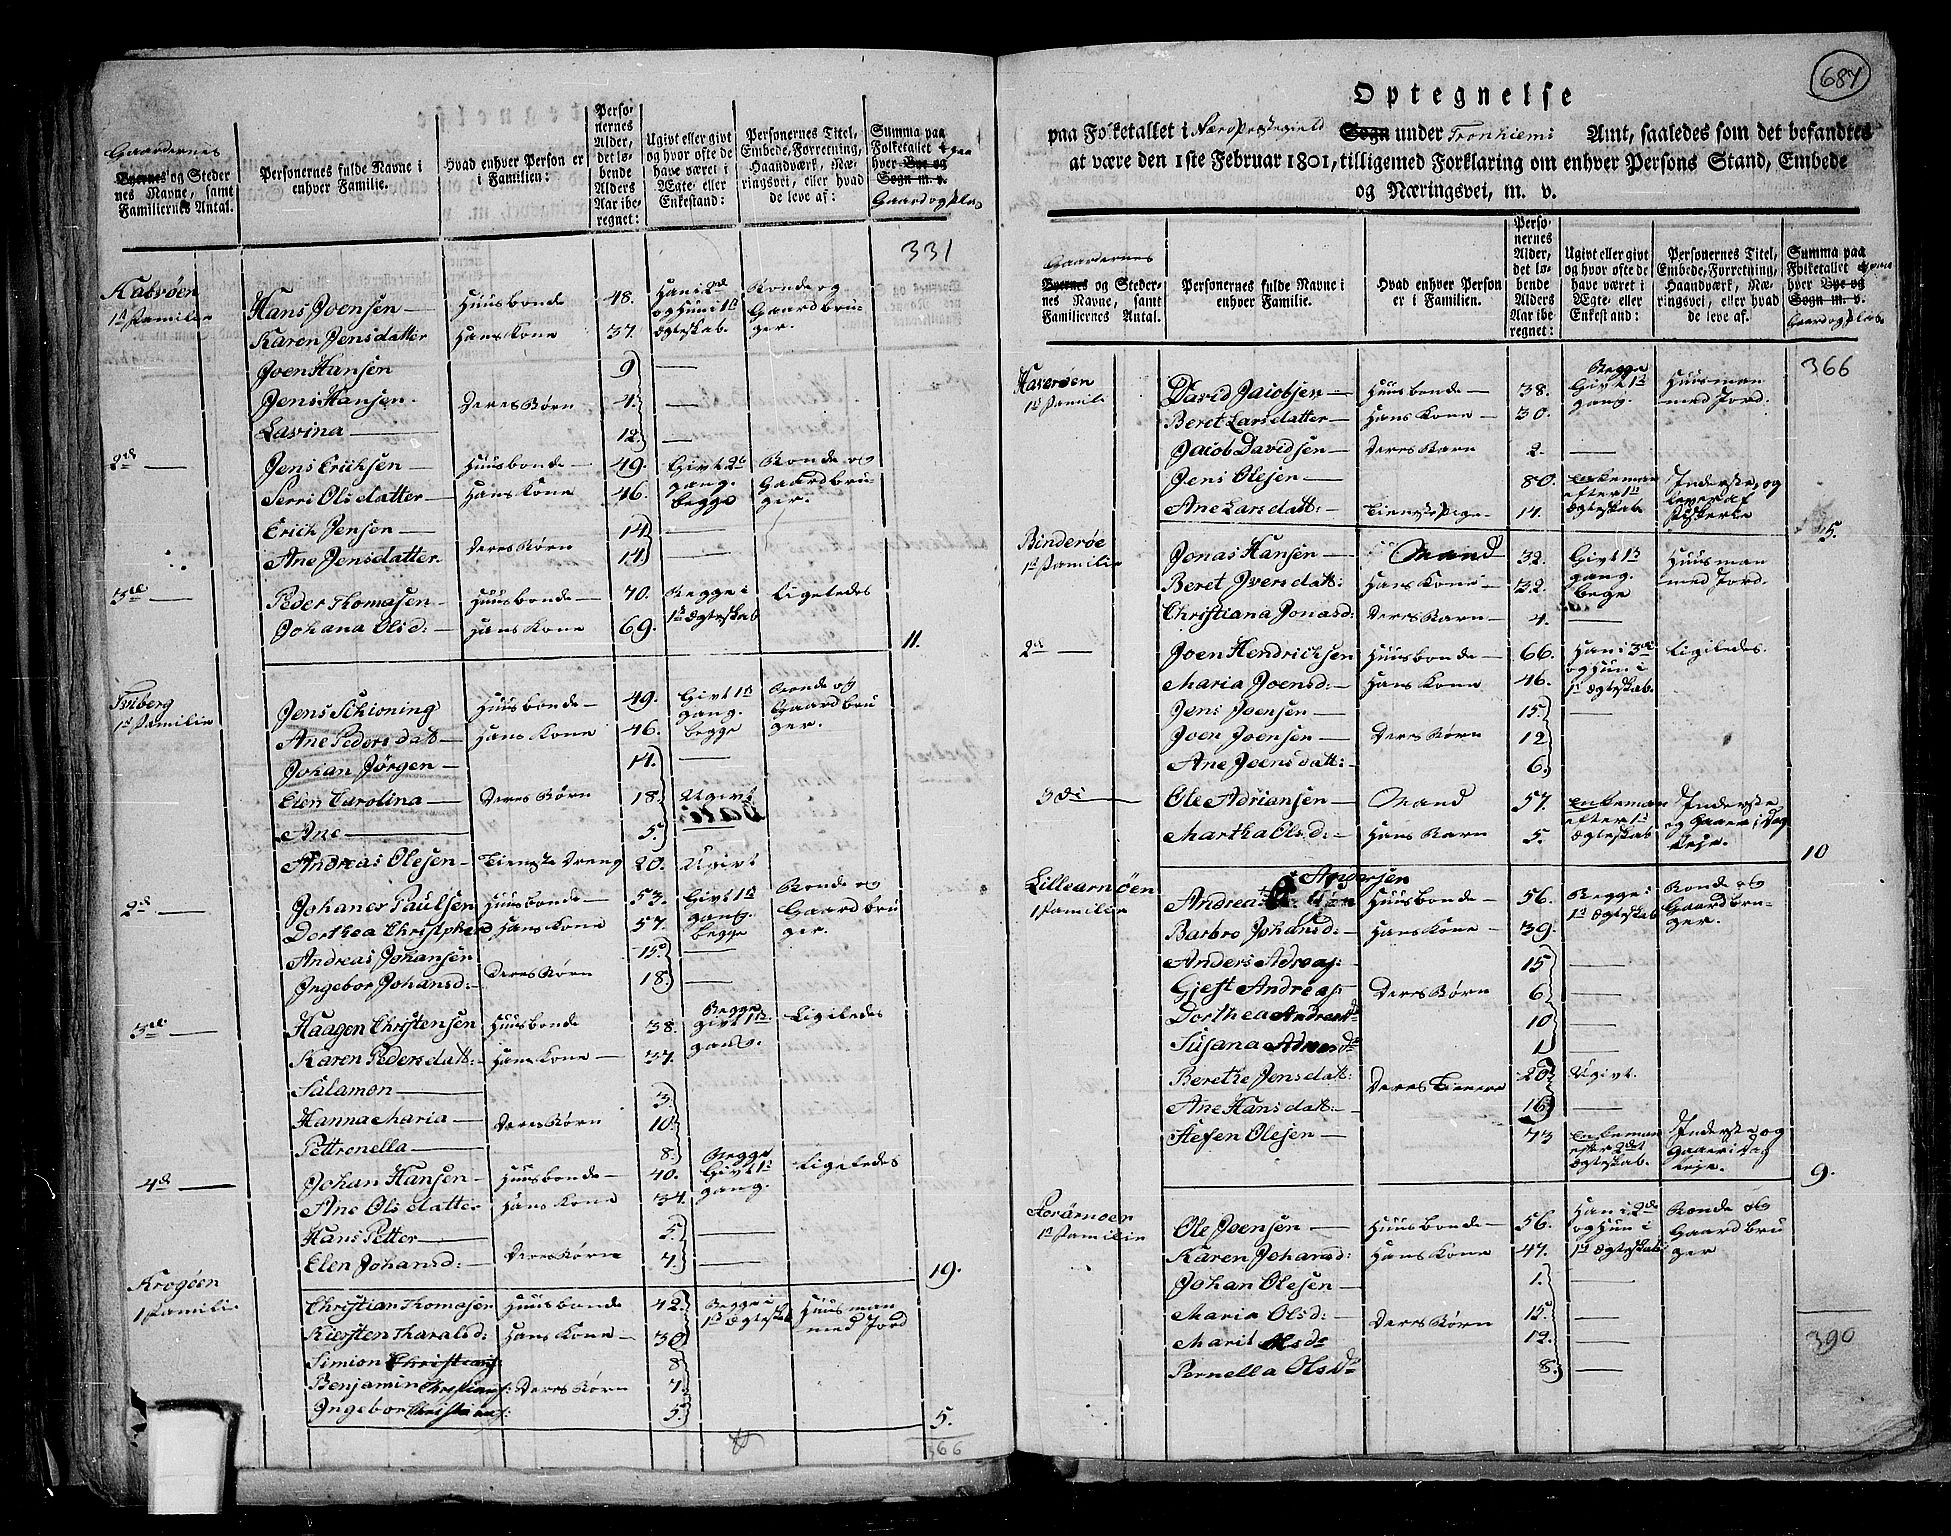 Gaardernes
Byernes og Steder
nes Navne, samt
Familiernes Antal.
Personernes fulde Navne i
enhver Familie.
Hvad enhver Person er
i Familien:
Perso-
nernes
Alder,
det lø-
bende
Alders
Aar ibe-
regnet:
Ugivt eller givt
og hvor ofte de
have været i
Ægte- eller
Enkestand:
Personernes Titel,
Embede, Forretning,
Haandværk, Næ-
ringsvei, eller hvad
de leve af:
Summa paa
Folketallet paa
hver Bye og
Sogn m. v.
Gaard og plas
331
Kalvøen
1ste Familie
Hans Joensen — Huusbonde 48. Han i 2de og Hun i 1ste Ægteskab. Bonde og Gaardbruger.
Karen Jensdatter Hans Kone 37.
Joen Hansen 9 —
Jens Hansen. Deres Børn 4. —
Lavina — 12. —
2de — Jens Erichsen — Huusbonde — 49. Givt 2de gang. begge Bonde og Gaardbruger.
Serri Olsdatter — Hans Kone 46.
Erich Jensen — 14 —
Ane Jensdatter. Deres Børn 14 —
3die — Peder Thomasen — Huusbonde — 70. Begge i 1ste Ægteskab Ligeledes
Johana Olsd: — Hans Kone 69.
11.
Friberg
1ste Familie
Jens Schioning Huusbonde — 49. Givt 1ste gang. begge Bonde og Gaardbruger.
Ane Pedersdatt — Hans Kone 46.
Johan Jørgen — 14. —
Elen Carolina — Deres Børn 18. Ugivt
Ane — 5.
Andreas Olesen — Tieneste Dreng 20. Ugivt
2de — Johanes Paulsen Huusbonde — 53. Givt 1ste gang. begge Bonde og Gaardbruger.
Dorthea Christpherd Hans Kone 57.
Andreas Johansen 15. —
Ingebor Johansd: — Deres Børn 18. —
3die — Haagen Christensen Huusbonde 38. Begge givt 1ste gang. Ligeledes
Karen Pedersdatt: — Hans Kone — 37.
Salamon — 3.
Hanna Maria — Deres Børn 10.
Petronella — 8.
4de — Johan Hansen — Huusbonde — 40. Begge Givt 1ste gang. Ligeledes
Ane Olsdatter Hans Kone 34.
Hans Petter — 2. —
Elen Johansd: — Deres Børn 4. —
19.
Krogøen
1 Familie
Christian Thomasen Huusbonde 42. Begge i 1ste Ægteskab Huusman med Jord
Kiersten Tharalsd: Hans Kone — 30
Simion Christians: 8
Benjamin Christians: Deres Børn 7.
Ingebor Christians: 5.
5.
366
687
Optegnelse
paa Folketallet i Nærø Præstegield Sogn under Tronhiems Amt, saaledes som det befandtes
at være den 1ste Februar 1801, tilligemed Forklaring om enhver Persons Stand, Embede
og Næringsvei, m. v.
Gaardernes
Byernes og Steder-
nes Navne, samt
Familiernes Antal.
Personernes fulde Navne i
enhver Familie.
Hvad enhver Person
er i Familien.
Perso-
nernes
Alder,
det lø-
bende
Alders
Aar ibe-
regnet:
Ugivt eller givt
og hvor ofte de
have været i
Ægte- eller
Enkestand:
Personernes Titel,
Embede, Forretning,
Haandværk, Næ-
ringsvei, eller hvad
de leve af.
Summa paa
Folketallet
hver Bye og
Sogn m. v.
Gaard og plas
366
Haverøen
1ste Famili
David Jacobsen — Huusbonde — 38. Begge Givt 1ste gang. Huusman med Jord.
Beret Larsdatter — Hans Kone — 30.
Jacob Davidsen — Deres Barn 2. —
Jens Olesen — 80. Enkeman efter 1ste Ægteskab Inderste, og lever af Fiskerie
Ane Larsdatt: — Tieneste Pige — 14.
5.
Binderøe
1ste Familie
Jonas Hansen — Mand 32. Givt 1ste gang. bege Huusman med Jord.
Beret Iversdatt: Hans Kone — 32.
Christiana Jonasd: Deres Barn — 4. —
2de — Joen Hendrichsen Huusbonde — 66. Han i 3die og Hun i 1ste Ægteskab. Ligeledes.
Maria Joensd: — Hans Kone 46.
Jens Joensen — 15. —
Joen Joensen — Deres Børn 12
Ane Joensdatt: — 6.
3die — Ole Adriansen — Mand 57. Enkeman efter 1ste Ægteskab Inderste og Gaaer i Dag Leje.
Martha Olsd: — Hans Barn 5.
10
Lillearnøen
1 Familie
Andreas Andersen Huusbonde — 56. Begge i 1ste Ægteskab Bonde og Gaardbruger.
Barbro Johansd: Hans Kone — 39.
Anders Adreas: 15 —
Gjest Andreas: — Deres Børn 6 —
Dorthea Andreasdr 10
Susana Adreasdr 1 —
Berethe Jensdatt: Deres Tienere 20 Ugivt.
Ane Hansdatt: — 16 —
Stefen Olesen — 73 Enkeman efter 2det Ægteskab. Inderste og Gaaer i Dag Leje.
9.
1ste Familie
Ole Joensen — Huusbonde — 56. Han i 2de og Hun i 1ste Ægteskab Bonde og Gaardbruger
Karen Johansd: Hans Kone 47.
Johan Olesen — 1. —
Maria Olsd: — Deres Børn 15. —
Marit Olsdr 12.
Pernella Olsdr 8. —
390